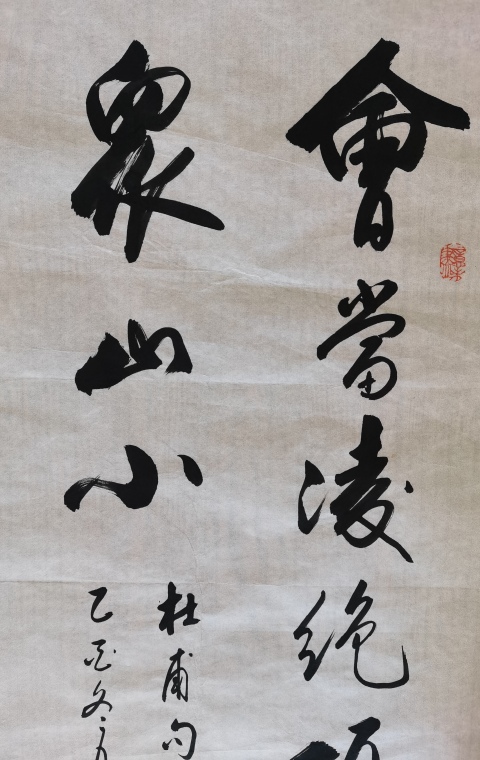 會當凌絕頂
眾山小
杜甫句
乙酉冬月